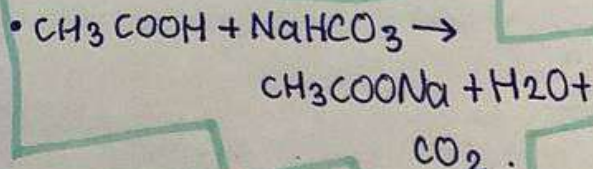 • CH3 COOH + NaHCO3 →
CH3COONa + H2O +
CO2 .